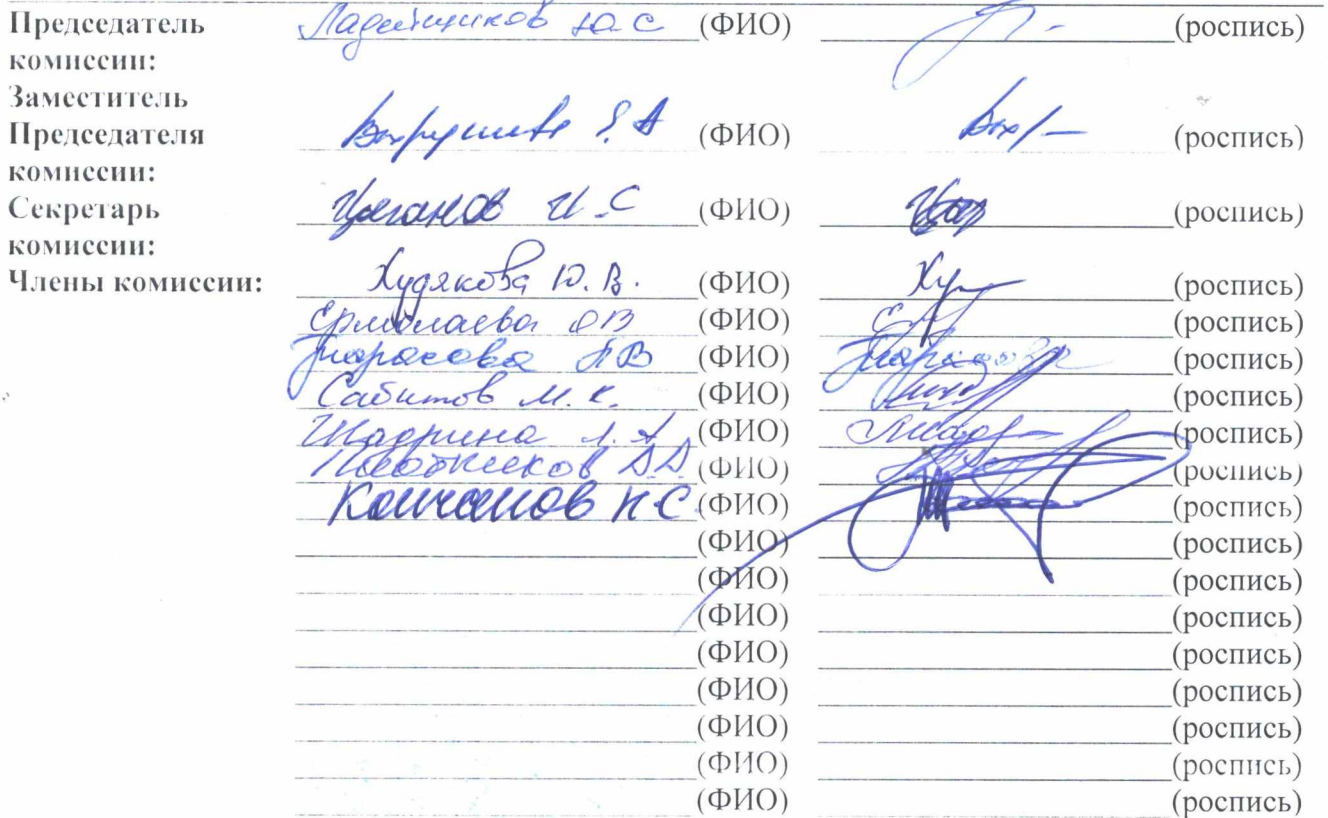 Председатель Ладейщиков Ю.С (ФИО) (роспись)
комиссии:
Заместитель
Председателя Вахрушева А (ФИО) Вах (роспись)
комиссии:
Секретарь Цыганов И.С (ФИО) (роспись)
комиссии:
Члены комиссии: Худякова Ю.В. (ФИО) Ху (роспись)
Ермолаева ОВ (ФИО) (роспись)
Тарасова ТВ (ФИО) Тарасова (роспись)
Сабитов М.К. (ФИО) (роспись)
Шадрина Л.А (ФИО) (роспись)
Плотников А.А. (ФИО) (роспись)
Н.С. (ФИО) (роспись)
(ФИО) (роспись)
(ФИО) (роспись)
(ФИО) (роспись)
(ФИО) (роспись)
(ФИО) (роспись)
(ФИО) (роспись)
(ФИО) (роспись)
(ФИО) (роспись)